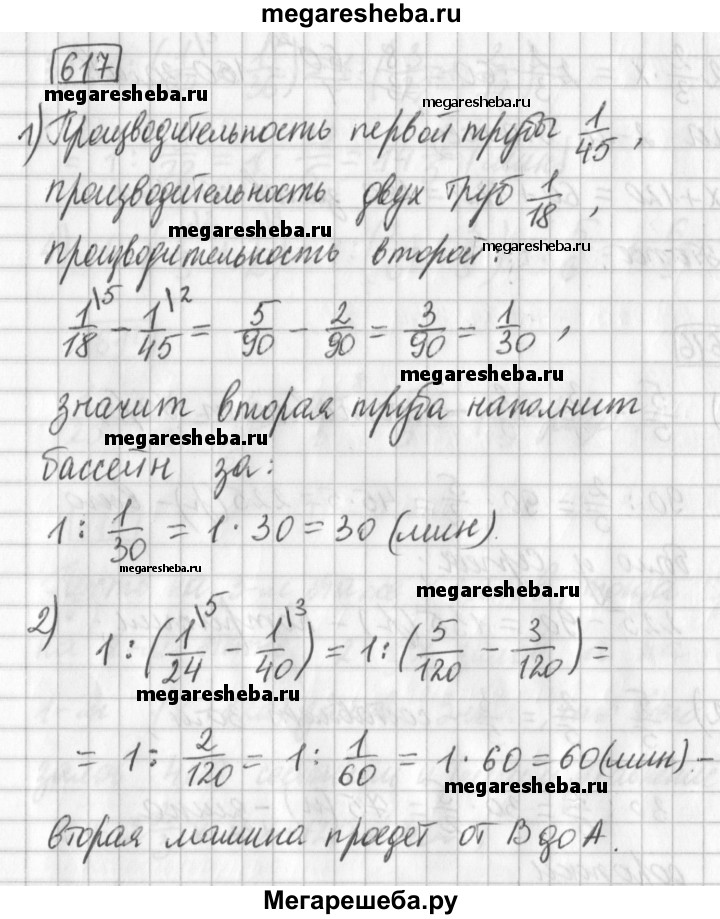 megaresheba.ru
617
megaresheba.ru
megaresheba.ru
1) Производительность первой трубы 1/45,
производительность двух труб 1/18,
megaresheba.ru
производительность второй:
megaresheba.ru
1/18 \5 - 1/45 \2 = 5/90 - 2/90 = 3/90 = 1/30,
megaresheba.ru
значит вторая труба наполнит
megaresheba.ru
бассейн за:
1 : 1/30 = 1 · 30 = 30 (мин).
megaresheba.ru
megaresheba.ru
2) 1 : (1/24 \5 - 1/40 \3) = 1 : (5/120 - 3/120) =
megaresheba.ru
= 1 : 2/120 = 1 : 1/60 = 1 · 60 = 60 (мин). -
megaresheba.ru
вторая машина проедет от В до А.
Мегарешеба.ру